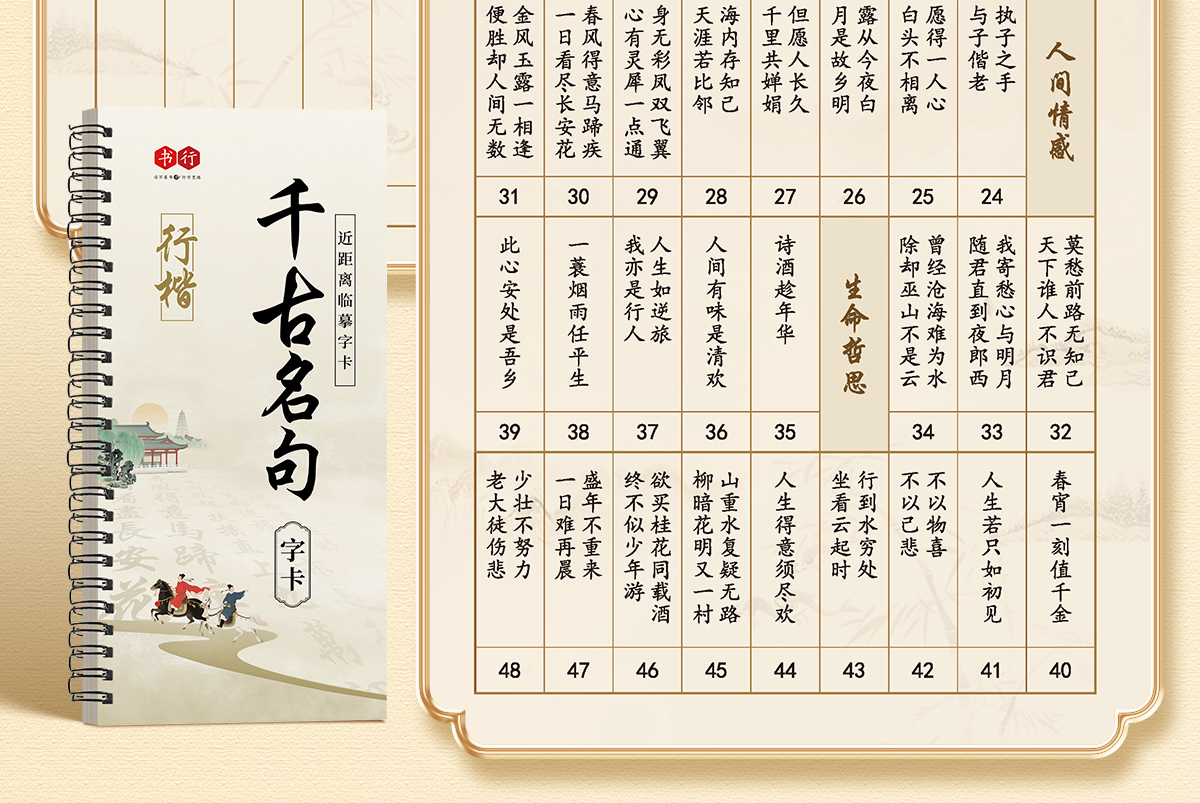 书行
读万卷书 行万里路
行楷
近距离临摹字卡
千古名句
字卡
人间情感
执子之手
与子偕老
24
愿得一人心
白头不相离
25
露从今夜白
月是故乡明
26
但愿人长久
千里共婵娟
27
海内存知己
天涯若比邻
28
身无彩凤双飞翼
心有灵犀一点通
29
春风得意马蹄疾
一日看尽长安花
30
金风玉露一相逢
便胜却人间无数
31
莫愁前路无知己
天下谁人不识君
32
我寄愁心与明月
随君直到夜郎西
33
曾经沧海难为水
除却巫山不是云
34
生命哲思
诗酒趁年华
35
人间有味是清欢
36
人生如逆旅
我亦是行人
37
一蓑烟雨任平生
38
此心安处是吾乡
39
春宵一刻值千金
40
人生若只如初见
41
不以物喜
不以己悲
42
行到水穷处
坐看云起时
43
人生得意须尽欢
44
山重水复疑无路
柳暗花明又一村
45
欲买桂花同载酒
终不似少年游
46
盛年不重来
一日难再晨
47
少壮不努力
老大徒伤悲
48